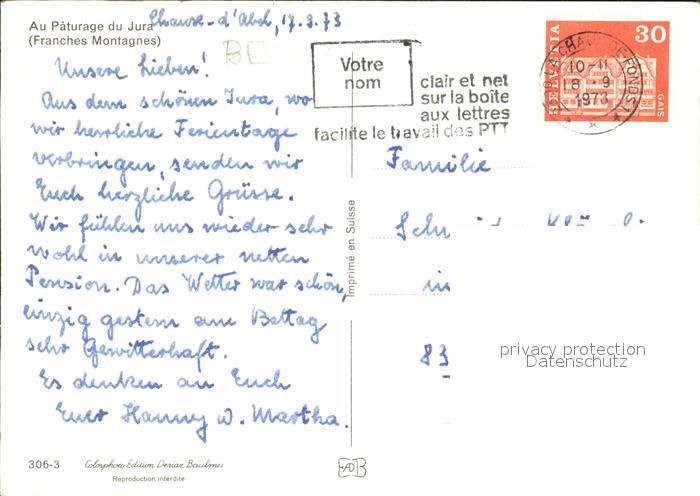 Au Pâturage du Jura
(Franches Montagnes)
Chaux-d'Abel, 17.9.73
BE
Unsere Lieben!
Aus dem schönen Jura, wo
wir herrliche Ferientage
verbringen, senden wir
Euch herzliche Grüsse.
Wir fühlen uns wieder sehr
wohl in unserer netten
Pension. Das Wetter war schön,
einzig gestern am Bettag
sehr Gewitterhaft.
Es denken an Euch
Euer Hanny u. Martha.
306-3
Colorphoto Edition Deriaz Baulmes
Reproduction interdite
Imprimé en Suisse
Votre
nom
clair et net
sur la boîte
aux lettres
facilite le travail des PTT
HELVETIA
30
GAIS
LA CHAUX-DE-FONDS 1
10-11
18 -9
1973
Familie
in
83
privacy protection
Datenschutz